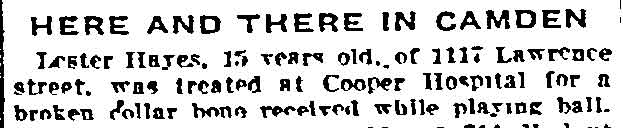 HERE AND THERE IN CAMDEN
Lester Hayes, 15 years old, of 1117 Lawrence
street, was treated at Cooper Hospital for a
broken collar bone received while playing ball.